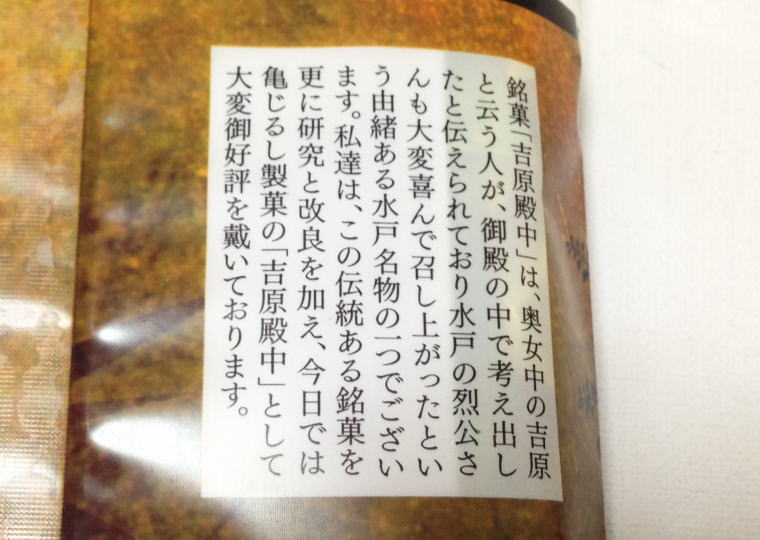 銘菓「吉原殿中」は、奥女中の吉原
と云う人が、御殿の中で考え出し
たと伝えられており水戸の烈公さ
んも大変喜んで召し上がったとい
う由緒ある水戸名物の一つでござい
ます。私達は、この伝統ある銘菓を
更に研究と改良を加え、今日では
亀じるし製菓の「吉原殿中」として
大変御好評を戴いております。